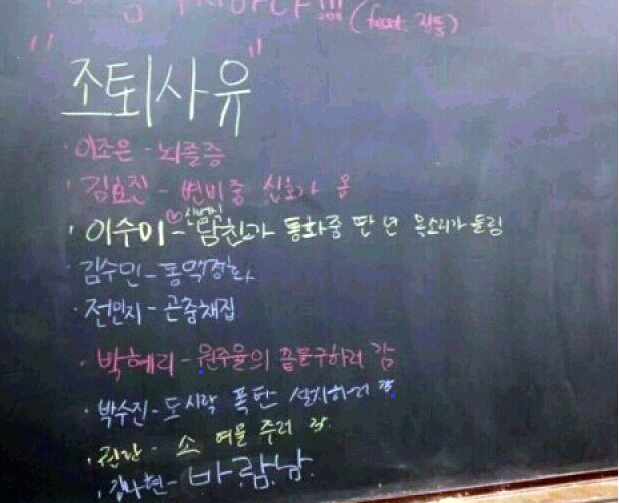 !!! (feat. 감동)
"조퇴사유"
· 이조은 - 뇌졸증
· 김효진 - 변비중 신호가 옴
· 이수미 - 남친과 통화중 딴 년 목소리가 들림
· 김수민 - 동맥경화
· 전민지 - 곤충채집
· 박혜리 - 원주율의 끝을구하러 감
· 박수진 - 도시락 폭탄 설치하러 감
· 소 여물 주러 감
· 김나현 - 바람남